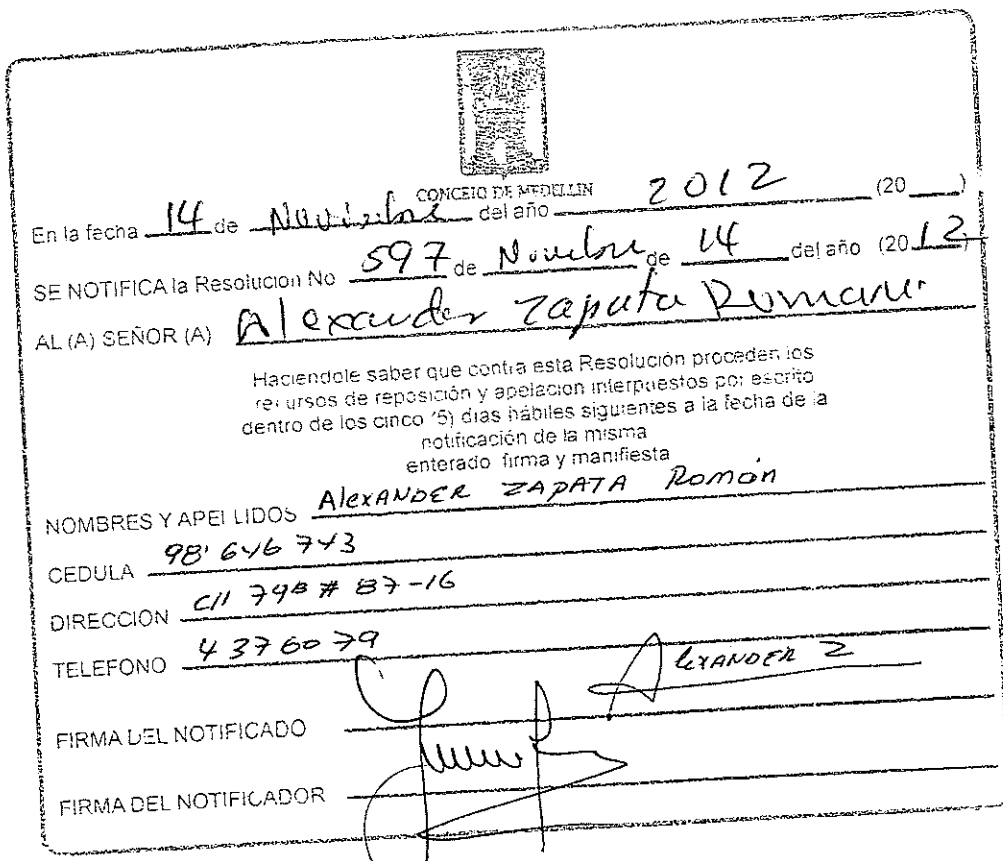 CONCEJO DE MEDELLIN
En la fecha 14 de Noviembre del año 2012 (20 )
SE NOTIFICA la Resolucion No 597 de Noviembre de 14 del año (2012)
AL (A) SEÑOR (A) Alexander Zapata Roman
Haciendole saber que contra esta Resolución proceden los
recursos de reposición y apelacion interpuestos por escrito
dentro de los cinco (5) días hábiles siguientes a la fecha de la
notificación de la misma
enterado firma y manifiesta
NOMBRES Y APELLIDOS AlexANDER ZAPATA Román
CEDULA 98'646743
DIRECCION Cll 79B # 87-16
TELEFONO 4376079
FIRMA DEL NOTIFICADO AlexANDER Z
FIRMA DEL NOTIFICADOR